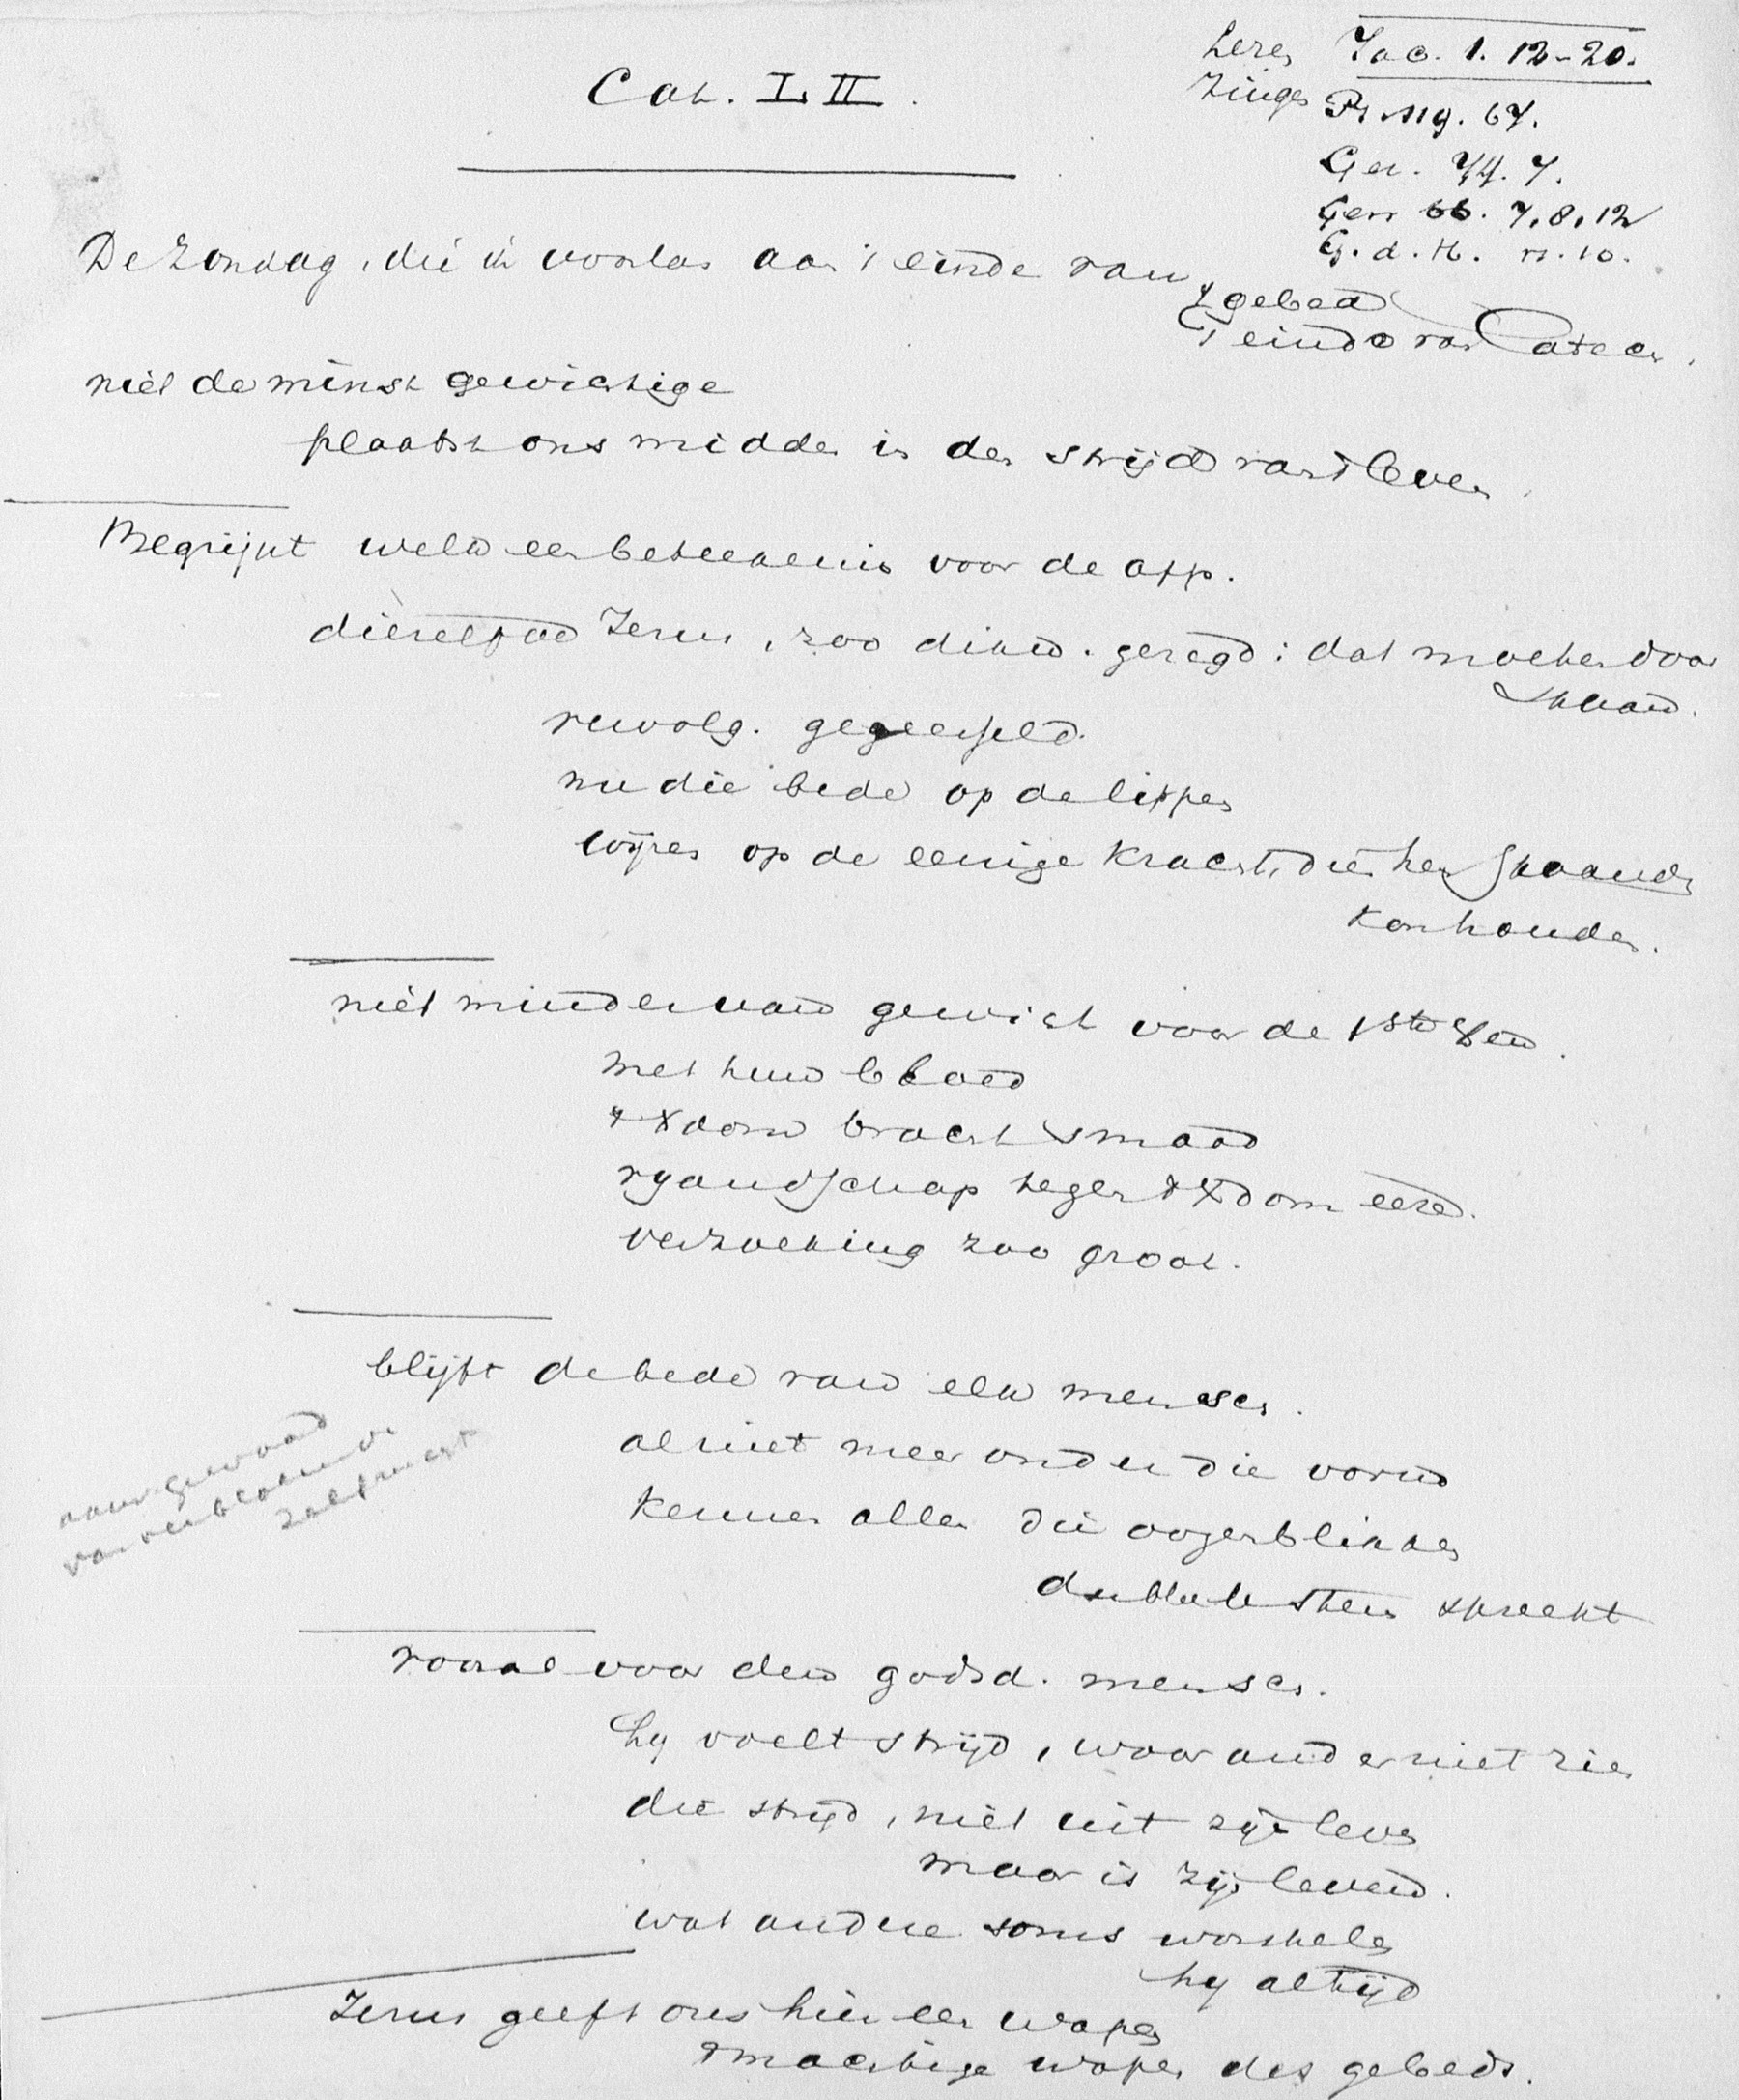 Cat. LII.
Lezen Jac. 1. 12-20.
Zingen Ps. 119. 67.
Gez. 74. 7.
Gez 66. 7, 8, 12
G. d. H. n. 10.
De Zondag, die ik voorlas aan 't einde van
't gebed
't einde van Catech.
niet de minst gewichtige
plaatst ons midden in den strijd van 't leven.
Begrijpt welk een beteekenis voor de app.
dienzelfde Jezus, zoo dikw. gezegd: dat moeten door
staan.
vervolg. gegeeseld.
nu die bede op de lippen
wijzen op de eenige kracht, die hen staande
kon houden.
niet minder van gewicht voor de 1ste
met hun bloed
't Xdom bracht smaad
vyandschap tegen 't Xdom
verzoeking zoo groot.
blijft de bede van elk mensch.
al niet meer onder die vorm
kennen allen die oogenblikken
sprekt
vooral voor den godsd. mensch.
hy voelt strijd, waar ander niet zien
die strijd, niet uit zijn leven
maar is zijn leven.
wat andere soms worstelen
hy altijd
Jezus geeft ons hier een wapen
't machtige wapen des gebeds.